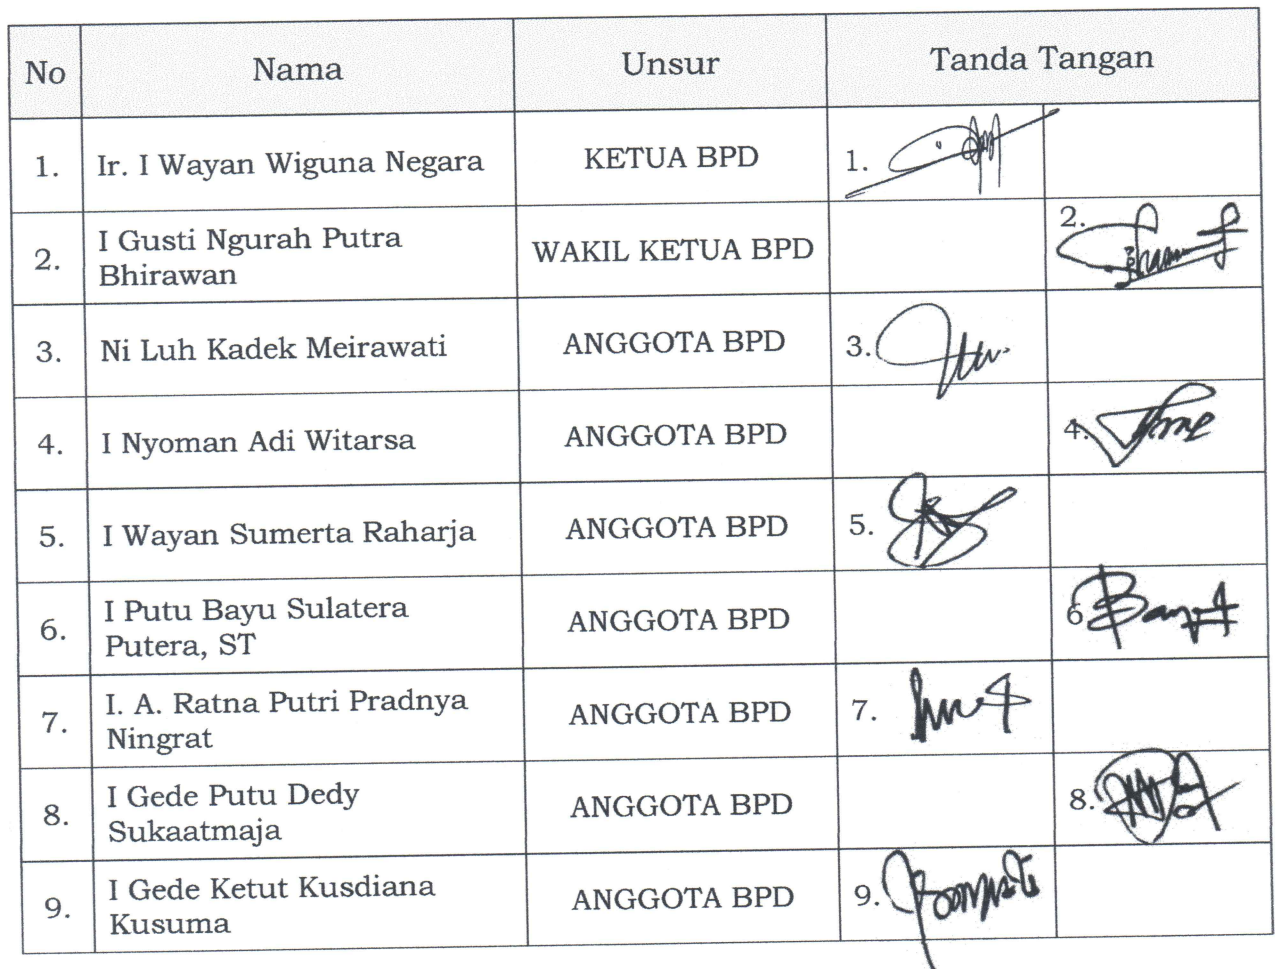 No Nama Unsur Tanda Tangan
1. Ir. I Wayan Wiguna Negara KETUA BPD 1.
2. I Gusti Ngurah Putra Bhirawan WAKIL KETUA BPD 2.
3. Ni Luh Kadek Meirawati ANGGOTA BPD 3.
4. I Nyoman Adi Witarsa ANGGOTA BPD 4.
5. I Wayan Sumerta Raharja ANGGOTA BPD 5.
6. I Putu Bayu Sulatera Putera, ST ANGGOTA BPD 6
7. I. A. Ratna Putri Pradnya Ningrat ANGGOTA BPD 7.
8. I Gede Putu Dedy Sukaatmaja ANGGOTA BPD 8.
9. I Gede Ketut Kusdiana Kusuma ANGGOTA BPD 9.